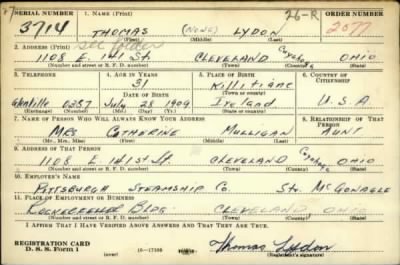 SERIAL NUMBER 1. NAME (Print) 26-R ORDER NUMBER
3714 THOMAS (NONE) LYDON 2077
(First) (Middle) (Last)
2. ADDRESS (Print) See folder
1108 E. 141 St. CLEVELAND Cuyahoga OHIO
(Number and street or R. F. D. number) (Town) (County) (State)
3. TELEPHONE 4. AGE IN YEARS 5. PLACE OF BIRTH 6. COUNTRY OF CITIZENSHIP
31
DATE OF BIRTH
Glenville 0357 July 28 1909 Ireland U.S.A
(Exchange) (Number) (Mo.) (Day) (Yr.) (State or country)
7. NAME OF PERSON WHO WILL ALWAYS KNOW YOUR ADDRESS 8. RELATIONSHIP OF THAT PERSON
MRS CATHERINE MULLIGAN AUNT
(Mr., Mrs., Miss) (First) (Middle) (Last)
9. ADDRESS OF THAT PERSON
1108 E. 141st St. CLEVELAND Cuyahoga OHIO
(Number and street or R. F. D. number) (Town) (County) (State)
10. EMPLOYER'S NAME
PITTSBURGH STEAMSHIP Co Str. McGONAGLE
11. PLACE OF EMPLOYMENT OR BUSINESS
ROCKEFELLER BLDG. CLEVELAND OHIO
(Number and street or R. F. D. number) (Town) (County) (State)
I AFFIRM THAT I HAVE VERIFIED ABOVE ANSWERS AND THAT THEY ARE TRUE.
REGISTRATION CARD
D. S. S. Form 1 (over) 16—17105 Thomas Lydon
(Registrant's signature)